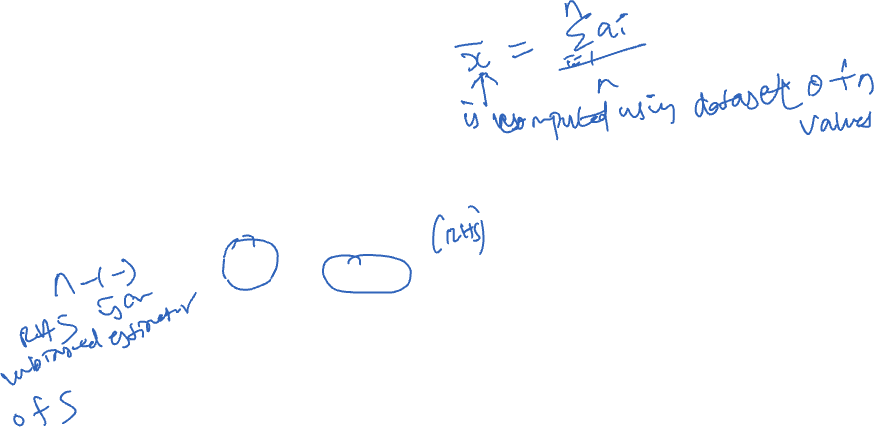 x̄ = Σ_{i=1}^{n} ai / n
is computed using dataset of n
values
(RHS)
n-(-)
RHS is an
unbiased estimator
of S